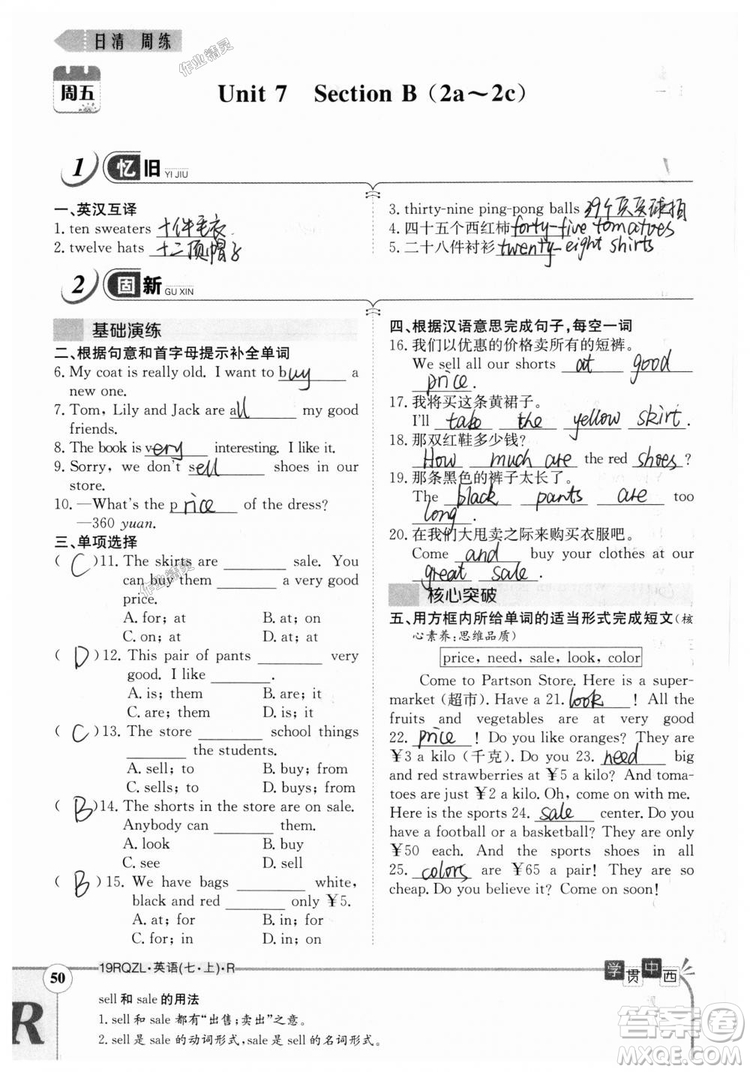 日清 周练
作业精灵
周五
Unit 7 Section B（2a～2c）
1 忆旧 YI JIU
一、英汉互译
1. ten sweaters 十件毛衣
2. twelve hats 十二顶帽子
3. thirty-nine ping-pong balls 39个
4. 四十五个西红柿 forty-five tomatoes
5. 二十八件衬衫 twenty-eight shirts
2 固新 GU XIN
基础演练
二、根据句意和首字母提示补全单词
6. My coat is really old. I want to buy a
new one.
7. Tom, Lily and Jack are all my good
friends.
8. The book is very interesting. I like it.
9. Sorry, we don't sell shoes in our
store.
10. —What's the price of the dress?
—360 yuan.
三、单项选择
( C )11. The skirts are ______ sale. You
can buy them ______ a very good
price.
A. for; at B. at; on
C. on; at D. at; at
( D )12. This pair of pants ______ very
good. I like ______.
A. is; them B. are; it
C. are; them D. is; it
( C )13. The store ______ school things
______ the students.
A. sell; to B. buy; from
C. sells; to D. buys; from
( B )14. The shorts in the store are on sale.
Anybody can ______ them.
A. look B. buy
C. see D. sell
( B )15. We have bags ______ white,
black and red ______ only ¥5.
A. at; for B. in; for
C. for; in D. for; at
四、根据汉语意思完成句子，每空一词
16. 我们以优惠的价格卖所有的短裤。
We sell all our shorts at good
price.
17. 我将买这条黄裙子。
I'll take the yellow skirt.
18. 那双红鞋多少钱?
How much are the red shoes?
19. 那条黑色的裤子太长了。
The black pants are too
long.
20. 在我们大甩卖之际来购买衣服吧。
Come and buy your clothes at our
great sale.
核心突破
五、用方框内所给单词的适当形式完成短文(核
心素养:思维品质)
price, need, sale, look, color
Come to Partson Store. Here is a super-
market (超市). Have a 21. look! All the
fruits and vegetables are at very good
22. price! Do you like oranges? They are
¥3 a kilo (千克). Do you 23. need big
and red strawberries at ¥5 a kilo? And toma-
toes are just ¥2 a kilo. Oh, come with me.
Here is the sports 24. sale center. Do you
have a football or a basketball? They are only
¥50 each. And the sports shoes in all
25. colors are ¥65 a pair! They are so
cheap. Do you believe it? Come soon!
作业精灵
50
19RQZL·英语(七·上)·R
R
sell 和 sale 的用法
1. sell 和 sale 都有“出售;卖出”之意。
2. sell 是 sale 的动词形式,sale 是 sell 的名词形式。
学贯中西
答案圈